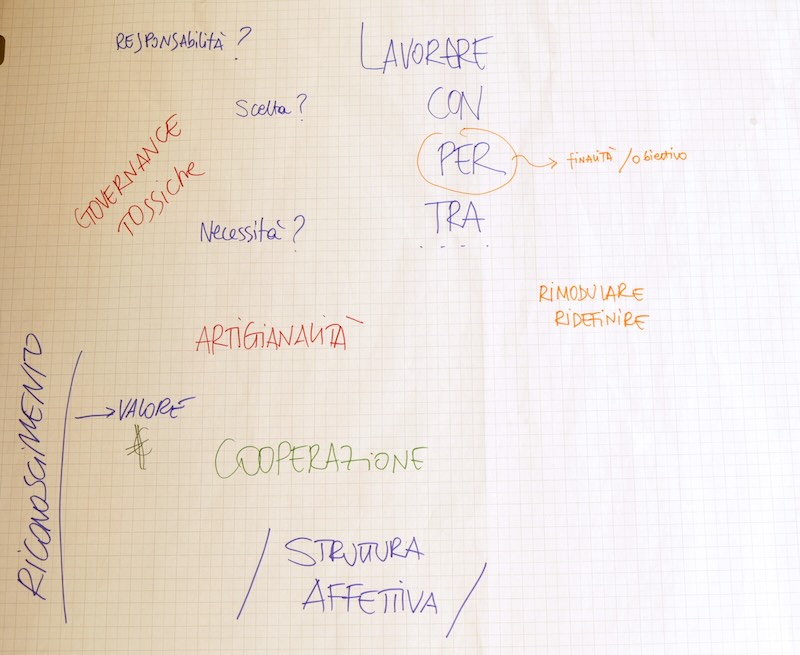 RESPONSAbiLiTÀ ?
LAVORARE
Scelta ?
CON
GOVERNANCE
TOSSiche
PER
finALiTÀ / obiettivo
Necessità ?
TRA
. . . . .
RiMODULARE
RiDEFiNiRE
ARTiGiANALiTÀ
RiCONOSCiMENTO
→ VALORE
COOPERAZiONE
/ STRUTTURA
AFFETTiVA /